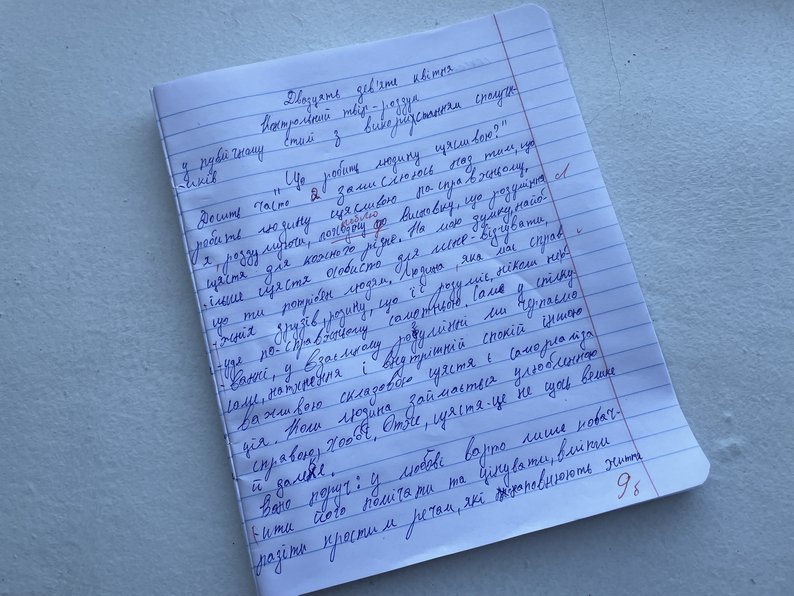 Двадцять дев'яте квітня
Контрольний твір-роздум
у публічному стилі з використанням сполуч-
-ників
"Що робить людину щасливою?"
Досить часто я замислююсь над тим, що
робить людину щасливою по-справжньому,
я, роздумуючи, роблю до висновку, що розуміння
щастя для кожного різне. На мою думку, найб-
-ільше щастя особисто для мене - відчувати,
що ти потрібен людям. Людина, яка має справ-
-жніх друзів, родину, що її розуміє, ніколи неб-
-уде по-справжньому самотньою. Саме у спілку-
-ванні, у взаємному розумінні ми черпаємо
силу, натхнення і внутрішній спокій іншою
важливою складовою щастя є самореаліза
ція. Коли людина займається улюбленною
справою, хоббі. Отже, щастя-це не щось велике
й далеке.
Воно поруч: у любові варто лише побач-
-ити його помічати та цінувати, вміти
радіти простим речам, які наповнюють життя
9б